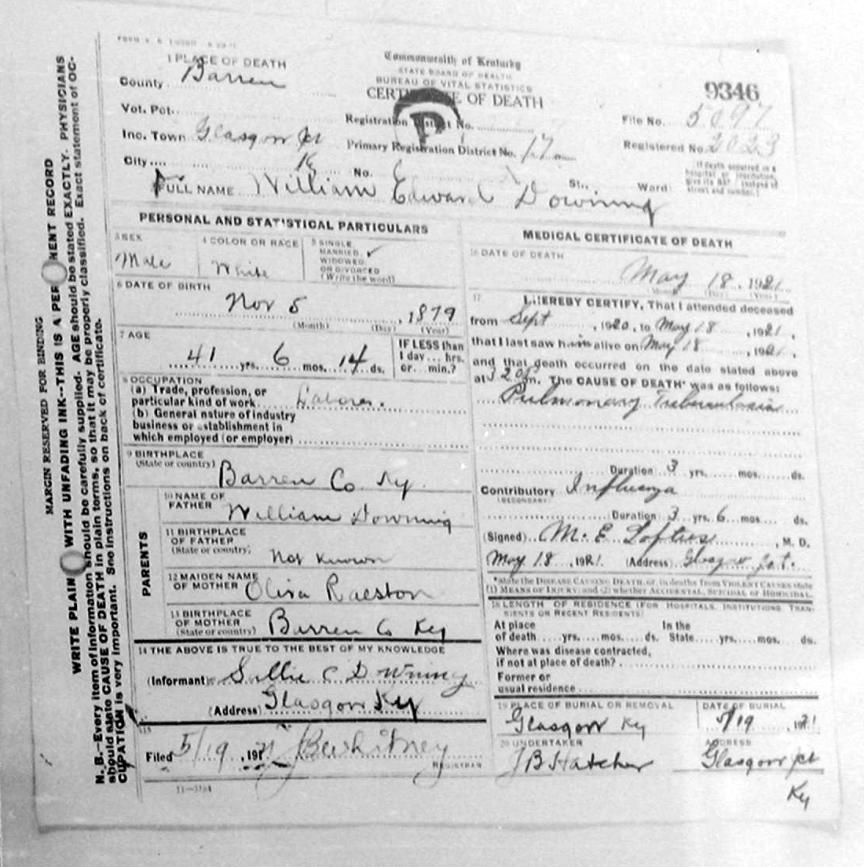 1 PLACE OF DEATH
County Barren
Vot. Pct.
Inc. Town Glasgow Jct
City Ky No. St., Ward
Commonwealth of Kentucky
STATE BOARD OF HEALTH
BUREAU OF VITAL STATISTICS
CERT OF DEATH
P
Registration District No.
Primary Registration District No. 17
9346
File No. 5097
Registered No. 2023
(If death occurred in a
hospital or institution,
give its NAME instead of
street and number.)
FULL NAME William Edward Downing
PERSONAL AND STATISTICAL PARTICULARS
3 SEX
Male
4 COLOR OR RACE
White
5 SINGLE,
MARRIED, ✓
WIDOWED
OR DIVORCED
(Write the word)
6 DATE OF BIRTH
Nov 5, 1879
(Month) (Day) (Year)
7 AGE
41 yrs. 6 mos. 14 ds.
IF LESS than
1 day... hrs.
or... min.?
8 OCCUPATION
(a) Trade, profession, or
particular kind of work Laborer.
(b) General nature of industry
business or establishment in
which employed (or employer)
9 BIRTHPLACE
(State or country) Barren Co Ky.
PARENTS
10 NAME OF
FATHER William Downing
11 BIRTHPLACE
OF FATHER
(State or country) Not Known
12 MAIDEN NAME
OF MOTHER Oliva Ralston
13 BIRTHPLACE
OF MOTHER
(State or country) Barren Co Ky
14 THE ABOVE IS TRUE TO THE BEST OF MY KNOWLEDGE
(Informant) Sallie C Downing
(Address) Glasgow Ky
15
Filed 5/19, 1921 J B Whitney
REGISTRAR
11-3184
MEDICAL CERTIFICATE OF DEATH
16 DATE OF DEATH
May 18, 1921
(Month) (Day) (Year)
17 I HEREBY CERTIFY, That I attended deceased
from Sept, 1920, to May 18, 1921,
that I last saw him alive on May 18, 1921,
and that death occurred on the date stated above
at m. The CAUSE OF DEATH* was as follows:
Pulmonary Tuberculosis
Duration 3 yrs. mos. ds.
Contributory Influenza
(SECONDARY)
Duration 3 yrs. 6 mos. ds.
(Signed) M. E. Loftis, M. D.
May 18, 1921 (Address) Glasgow Jct.
*State the DISEASE CAUSING DEATH, or, in deaths from VIOLENT CAUSES state
(1) MEANS OF INJURY; and (2) whether ACCIDENTAL, SUICIDAL or HOMICIDAL.
18 LENGTH OF RESIDENCE (FOR HOSPITALS, INSTITUTIONS, TRANSIENTS OR RECENT RESIDENTS)
At place In the
of death....yrs....mos....ds. State....yrs....mos....ds.
Where was disease contracted,
if not at place of death?
Former or
usual residence
19 PLACE OF BURIAL OR REMOVAL
Glasgow Ky
DATE OF BURIAL
5/19, 1921
20 UNDERTAKER
J B Hatcher
ADDRESS
Glasgow Jct
Ky
MARGIN RESERVED FOR BINDING
WRITE PLAIN WITH UNFADING INK--THIS IS A PER NENT RECORD
N. B.--Every item of information should be carefully supplied. AGE should be stated EXACTLY. PHYSICIANS
should state CAUSE OF DEATH in plain terms, so that it may be properly classified. Exact statement of OC-
CUPATION is very important. See instructions on back of certificate.